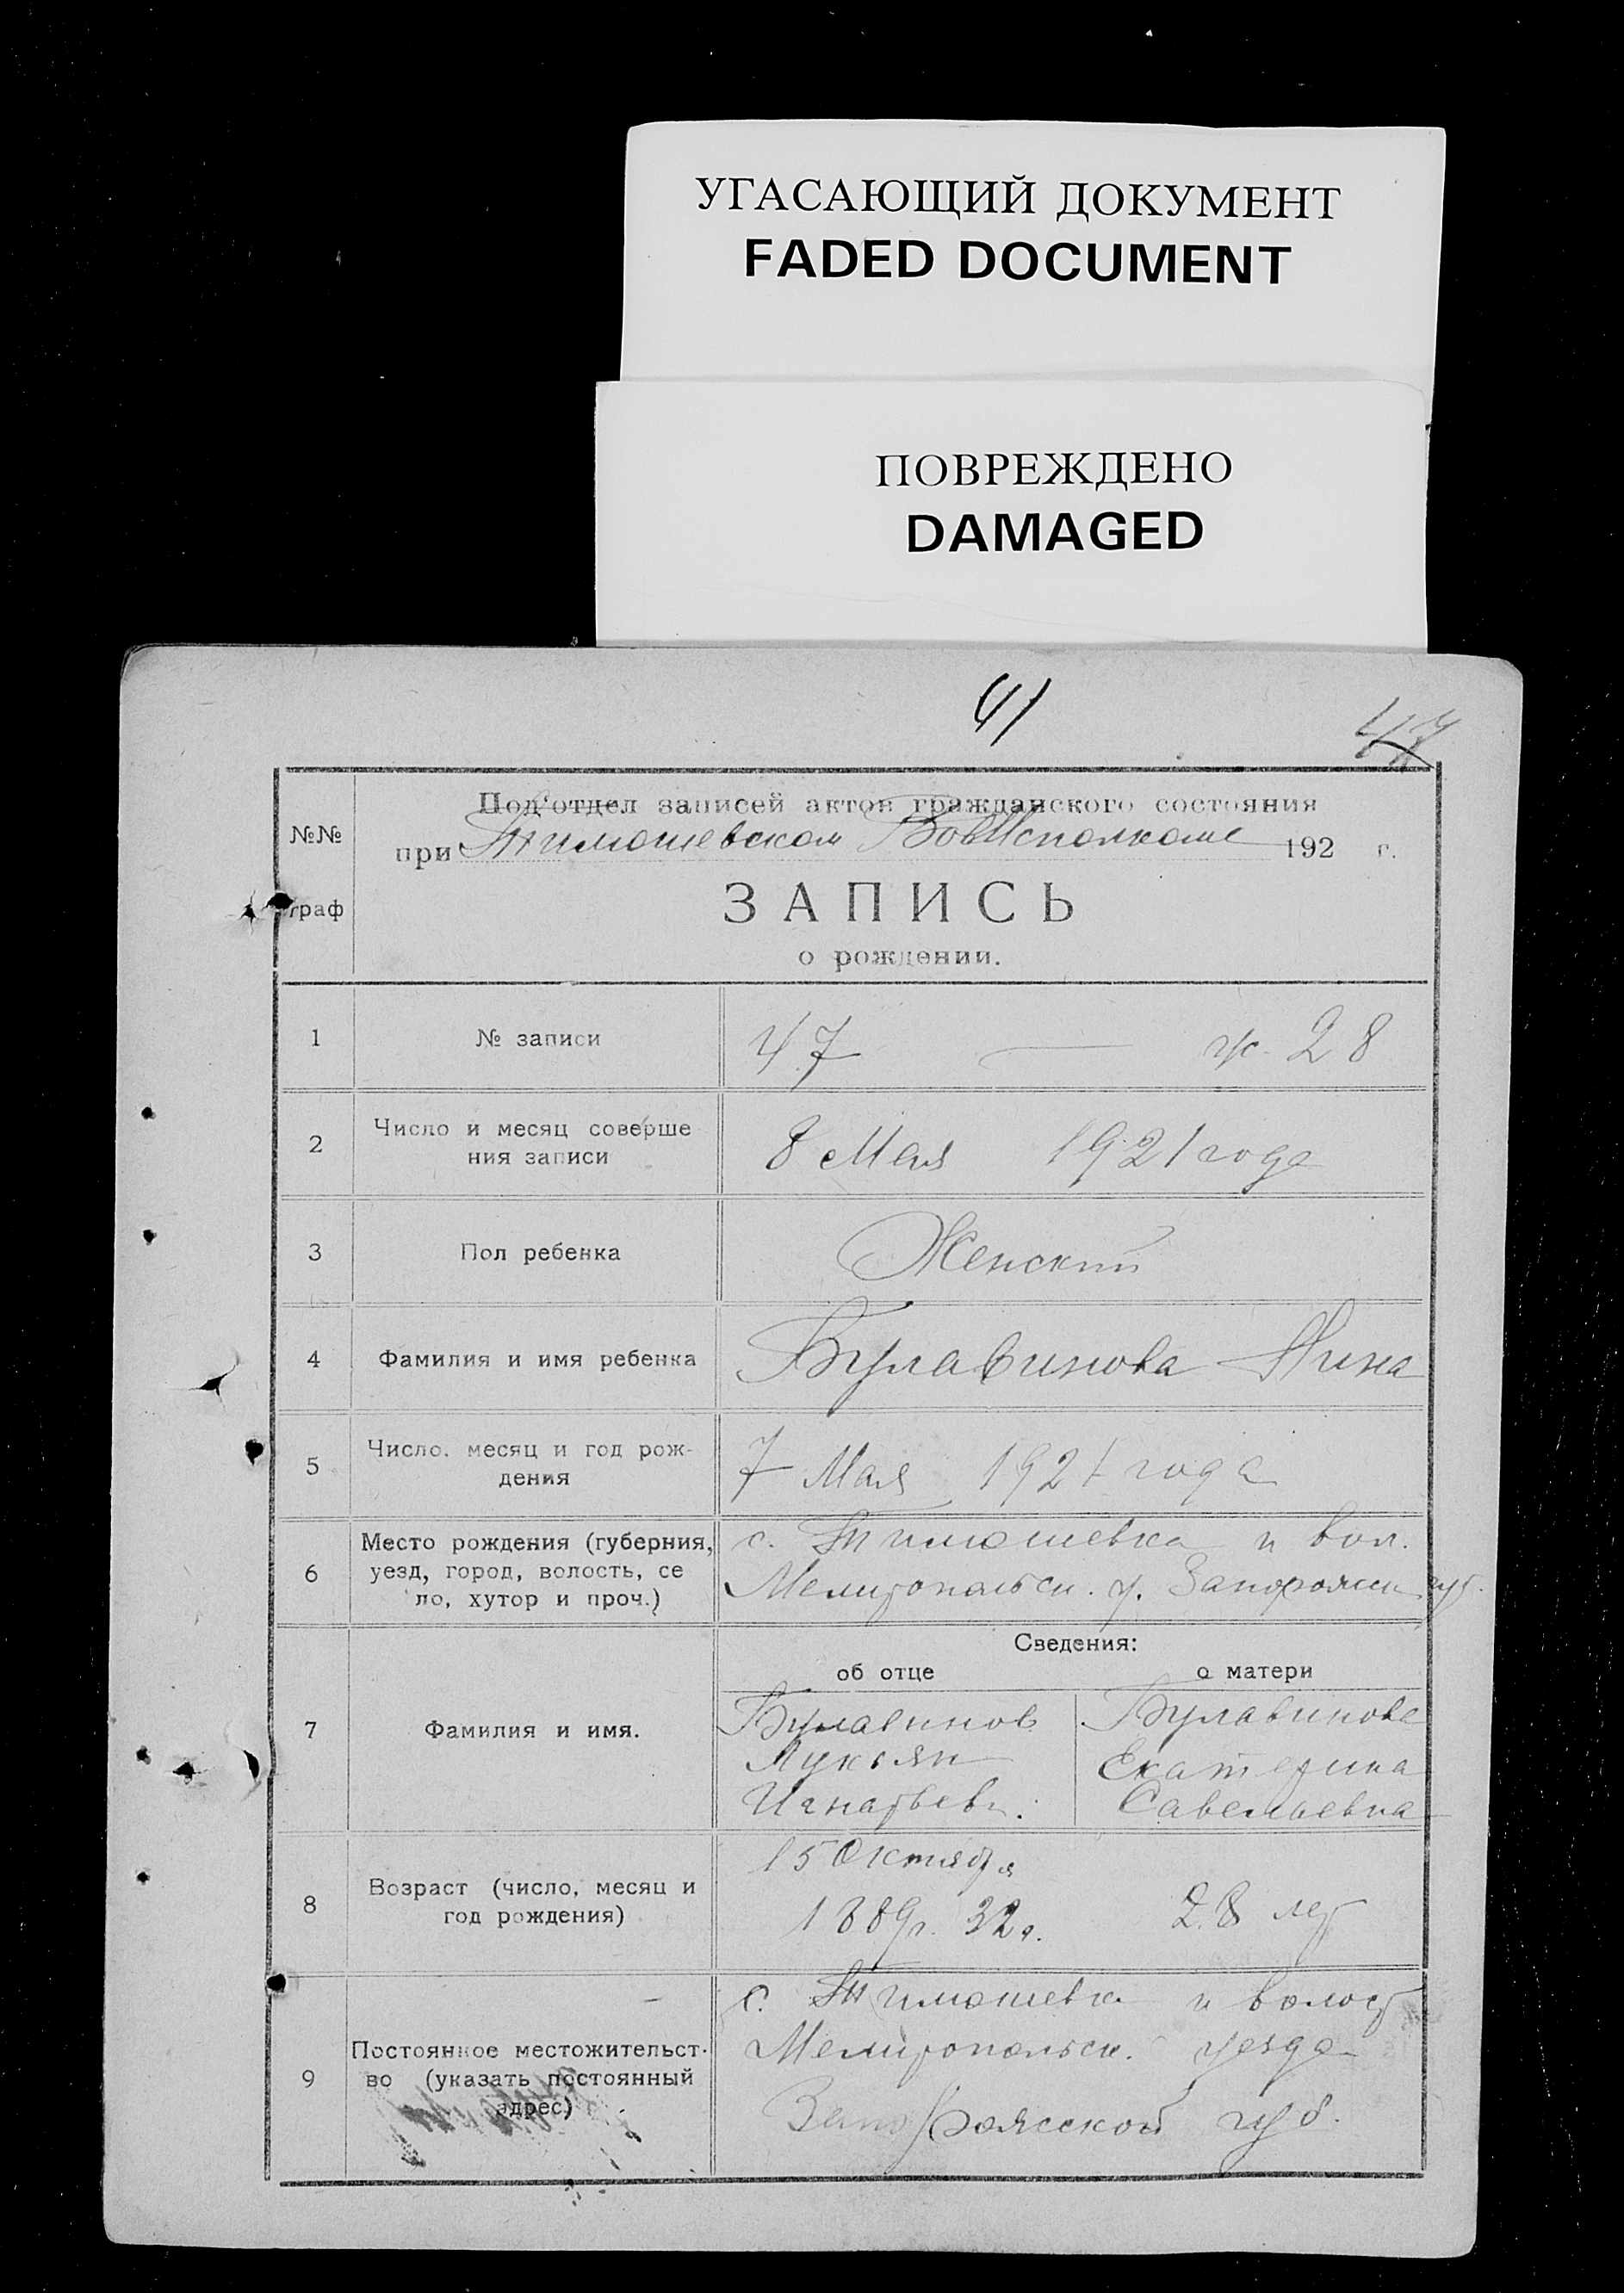 УГАСАЮЩИЙ ДОКУМЕНТ
FADED DOCUMENT
ПОВРЕЖДЕНО
DAMAGED
41
47
Под'отдел записей актов гражданского состояния
№№ граф
при Тимошевском Волисполкоме 192 г.
ЗАПИСЬ
о рождении.
1 № записи 47 — ж. 28
2 Число и месяц соверше
ния записи
8 Мая 1921 года
3 Пол ребенка Женский
4 Фамилия и имя ребенка Булавинова Нина
5 Число. месяц и год рож-
дения
7 Мая 1921 года
6 Место рождения (губерния,
уезд, город, волость, се
ло, хутор и проч.)
с. Тимошевка и вол.
Мелитопольск. у. Запорожск губ.
Сведения:
об отце о матери
7 Фамилия и имя.
Булавинов
Лукьян
Игнатьев.
Булавинова
Екатерина
Савельевна
8 Возраст (число, месяц и
год рождения)
15 Октября
1889г. 32г.
28 лет
9 Постоянное местожительст-
во (указать постоянный
адрес)
с. Тимошевка и волост
Мелитопольск. уезда
Запорожской губ.